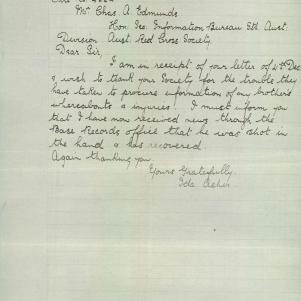 Mr Chas. A. Edmunds
Hon. Sec. Information Bureau Sth. Aust.
Division Aust. Red Cross Society.
Dear Sir,
I am in receipt of your letter of 4th Dec
& wish to thank your Society for the trouble they
have taken to procure information of my brother's
whereabouts & injuries. I must inform you
that I have now received news through the
Base Records office that he was shot in
the hand & has recovered.
Again thanking you.
Yours Gratefully.
Ida